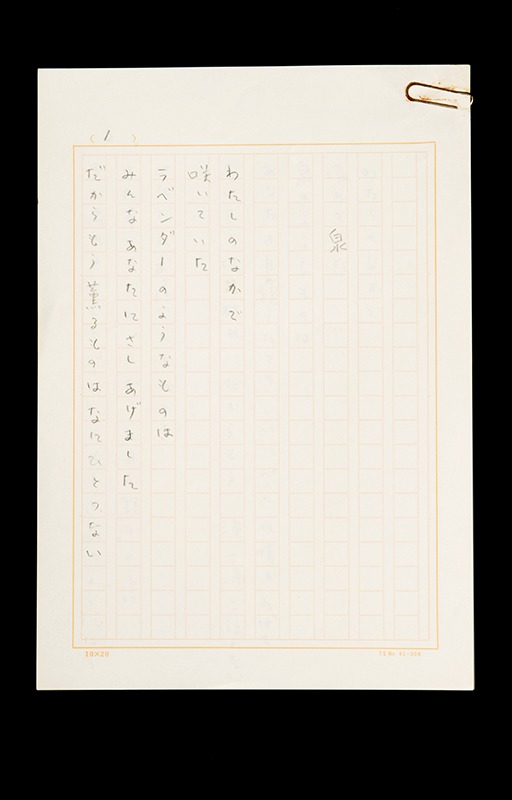 泉
わたしのなかで
咲いていた
ラベンダーのようなものは
みんなあなたにさしあげました
だからもう薫るものはなにひとつない
(1)
10×20